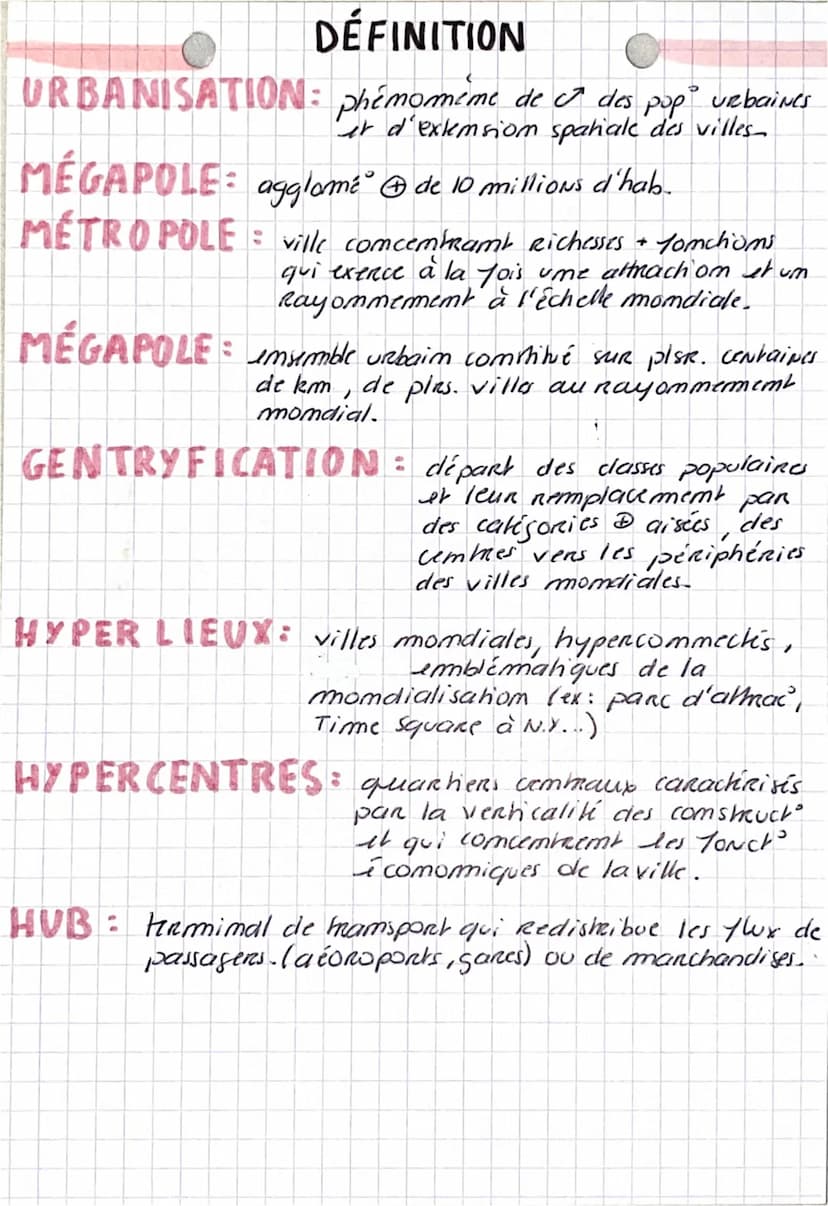 DÉFINITION
URBANISATION: phénomème de ↗ des pop° urbaines
et d'extension spatiale des villes
MÉGAPOLE: agglomé° ⊕ de 10 millions d'hab.
MÉTROPOLE: ville concentrant richesses + fonctions
qui exerce à la fois une attraction et un
Rayonnement à l'échelle mondiale.
MÉGAPOLE: ensemble urbain constitué sur plsr. centaines
de km, de plrs. villes au rayonnement
mondial.
GENTRYFICATION: départ des classes populaires
et leur remplacement par
des catégories ⊕ aisées, des
centres vers les périphéries
des villes mondiales.
HYPER LIEUX: villes mondiales, hyperconnectés,
emblématiques de la
mondialisation (ex: parc d'attrac°,
Time Square à N.Y...)
HYPERCENTRES: quartiers centraux caractérisés
par la verticalité des construct°
et qui concentrent les fonct°
économiques de la ville.
HUB: terminal de transport qui redistribue les flux de
passagers. (aéoroports, gares) ou de marchandises.